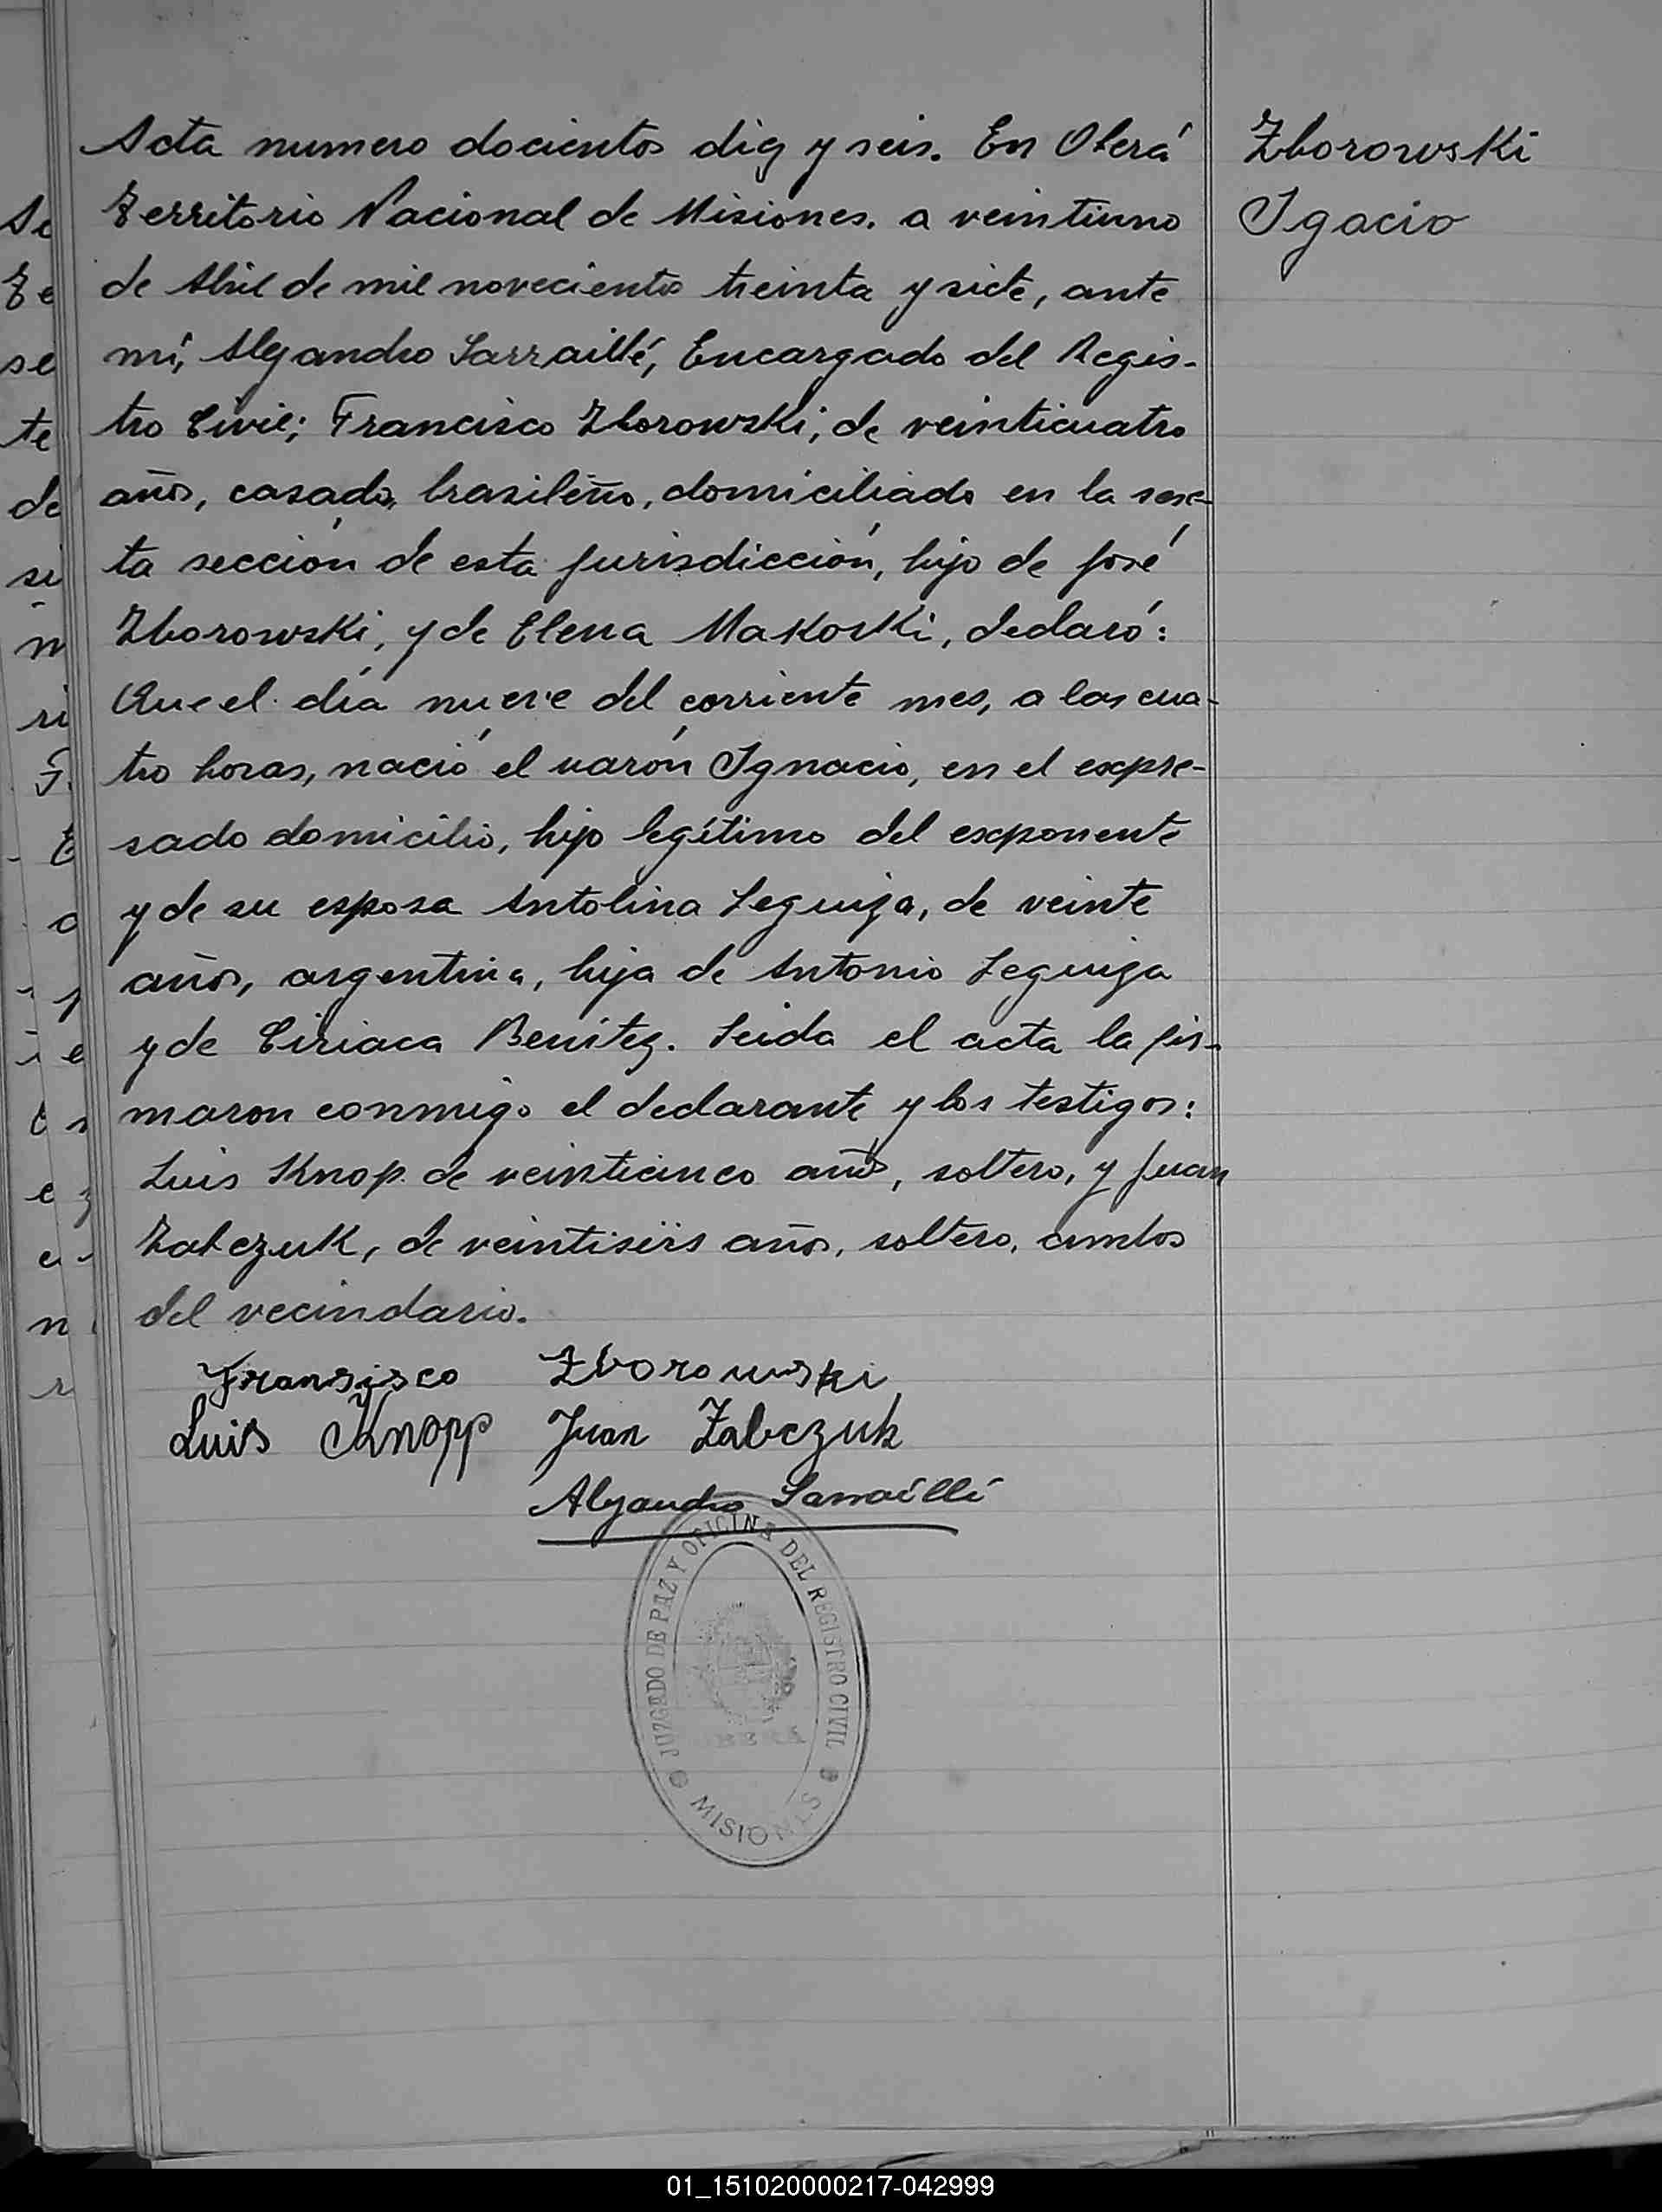 Acta numero docientos diez y seis. En Oberá
Territorio Nacional de Misiones. a veintiuno
de Abril de mil novecientos treinta y siete, ante
mí, Alejandro Sarraillé, Encargado del Regis-
tro Civil; Francisco Zborowski, de veinticuatro
años, casado, brasileño, domiciliado en la sex-
ta sección de esta jurisdicción, hijo de José
Zborowski, y de Elena Makoski, declaró:
Que el día nueve del corriente mes, a las cua-
tro horas, nació el varón Ignacio, en el expre-
sado domicilio, hijo legítimo del exponente
y de su esposa Antolina Leguiza, de veinte
años, argentina, hija de Antonio Leguiza
y de Ciriaca Benítez. Leida el acta la fir-
maron conmigo el declarante y los testigos:
Luis Knop de veinticinco años, soltero, y Juan
Zabczuk, de veintiseis años, soltero, ambos
del vecindario.
Fransisco Zborowski
Luis Knopp Juan Zabczuk
Alejandro Sarraillé
JUZGADO DE PAZ Y OFICINA DEL REGISTRO CIVIL
OBERÁ
MISIONES
Zborowski
Igacio
01_151020000217-042999